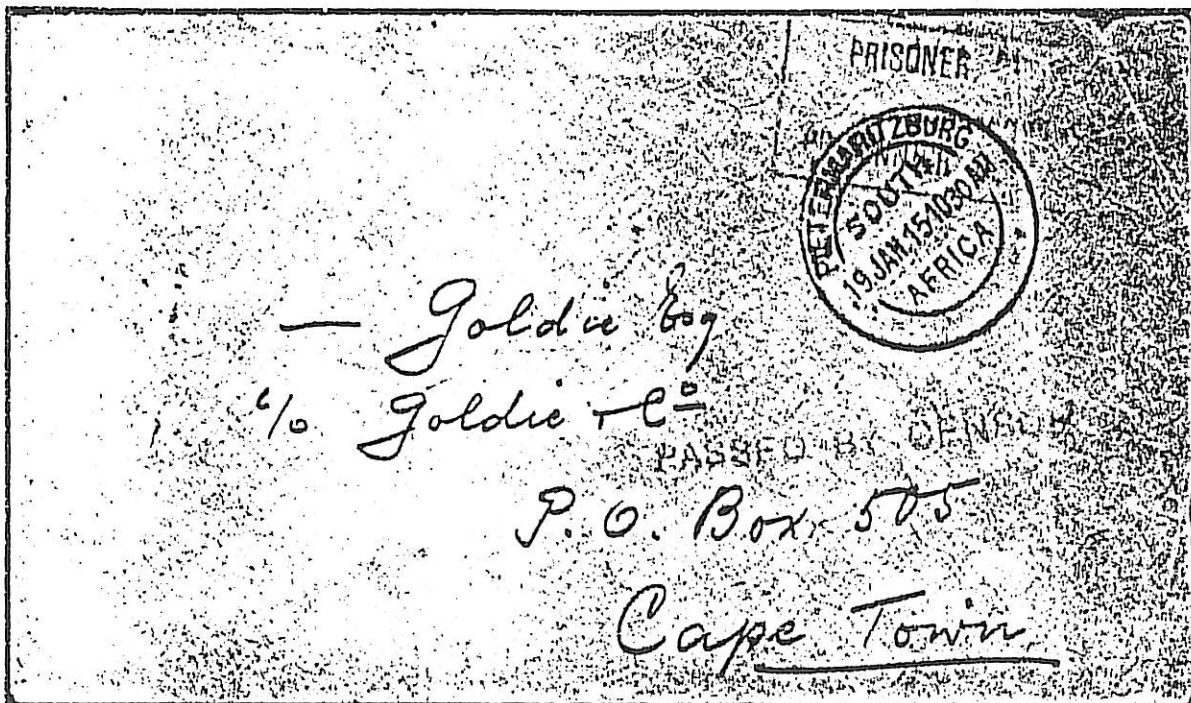 PRISONER
PIETERMARITZBURG
SOUTH
19 JAN.15·10·30 AM
AFRICA
— Goldie Esq
c/o Goldie + Co
PASSED BY CENSOR
P. O. Box 505
Cape Town